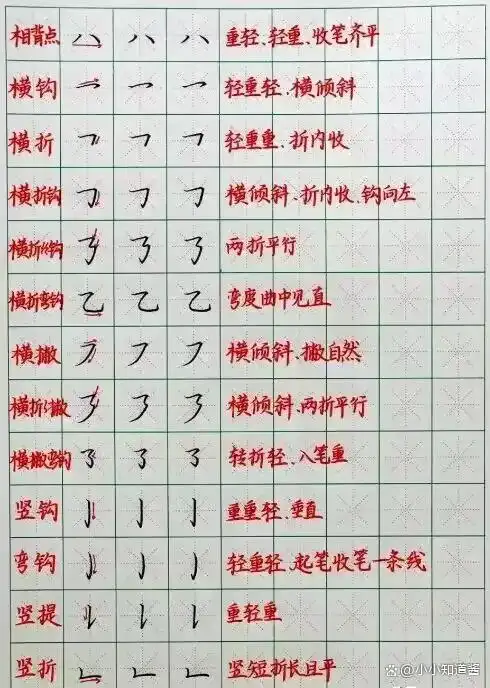 相背点 重轻、轻重、收笔齐平
横钩 轻重轻、横倾斜
横折 轻重重、折内收
横折钩 横倾斜、折内收、钩向左
横折折钩 两折平行
横折弯钩 弯度曲中见直
横撇 横倾斜、撇自然
横折折撇 横倾斜、两折平行
横撇弯钩 转折轻、入笔重
竖钩 重重轻、垂直
弯钩 轻重轻、起笔收笔一条线
竖提 重轻重
竖折 竖短折长且平
@小小知道酱